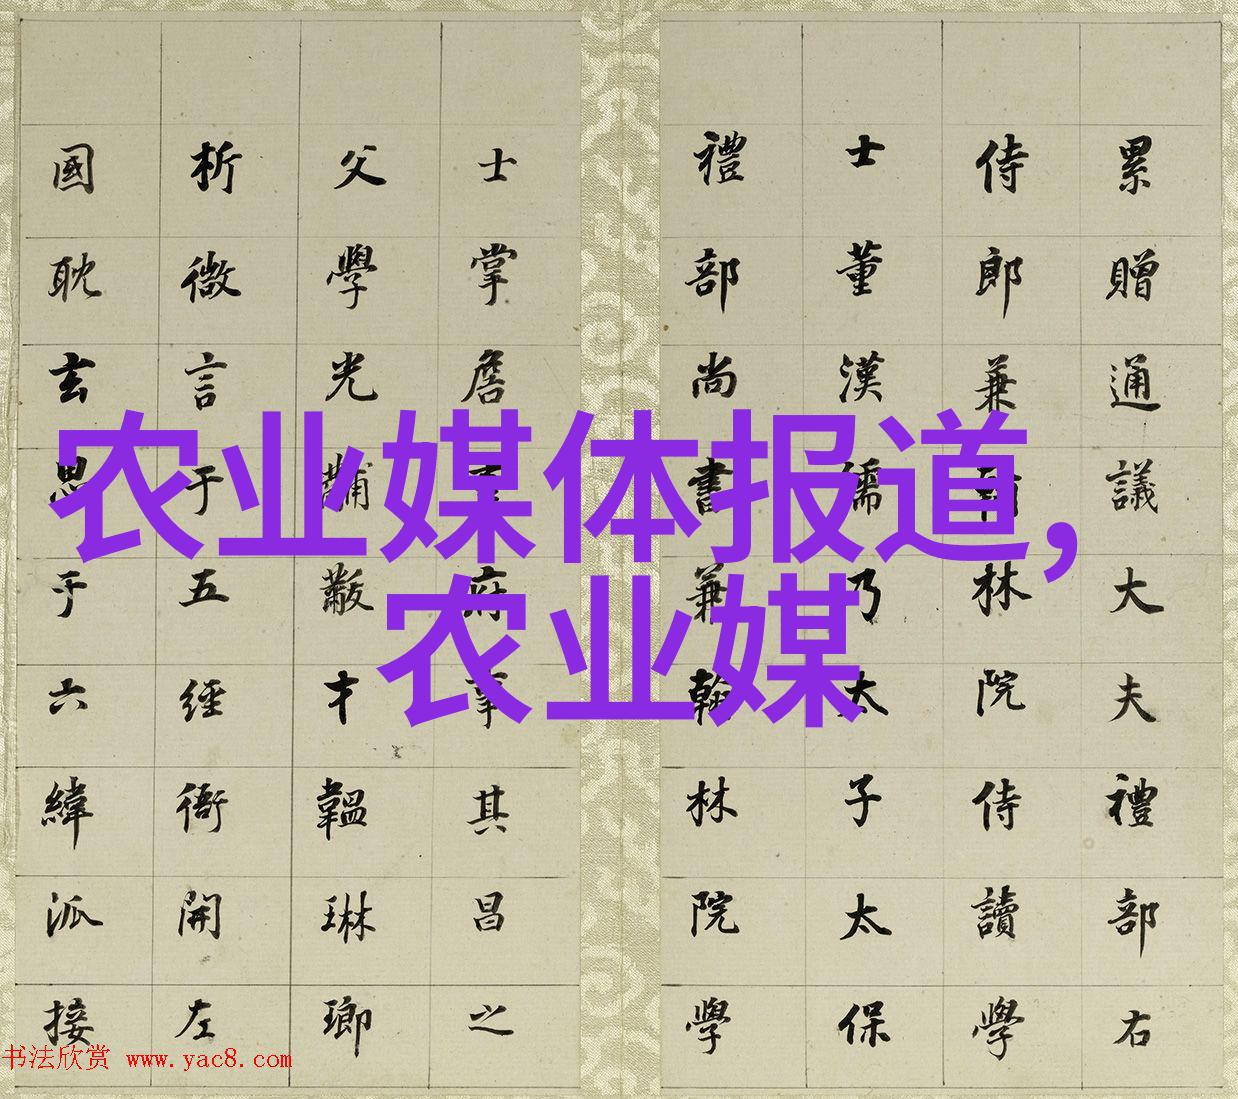 累贈通議大夫禮部右
侍郎兼翰林院侍讀學
士董漢儒乃太子太保
禮部尚書兼翰林院學
士掌詹事府事其昌之
父學光黼黻才韞琳瑯
析微言于五經衢開左
國耽玄思于六緯派接
农业媒体报道,
农业媒
书法欣赏 www.yac8.com